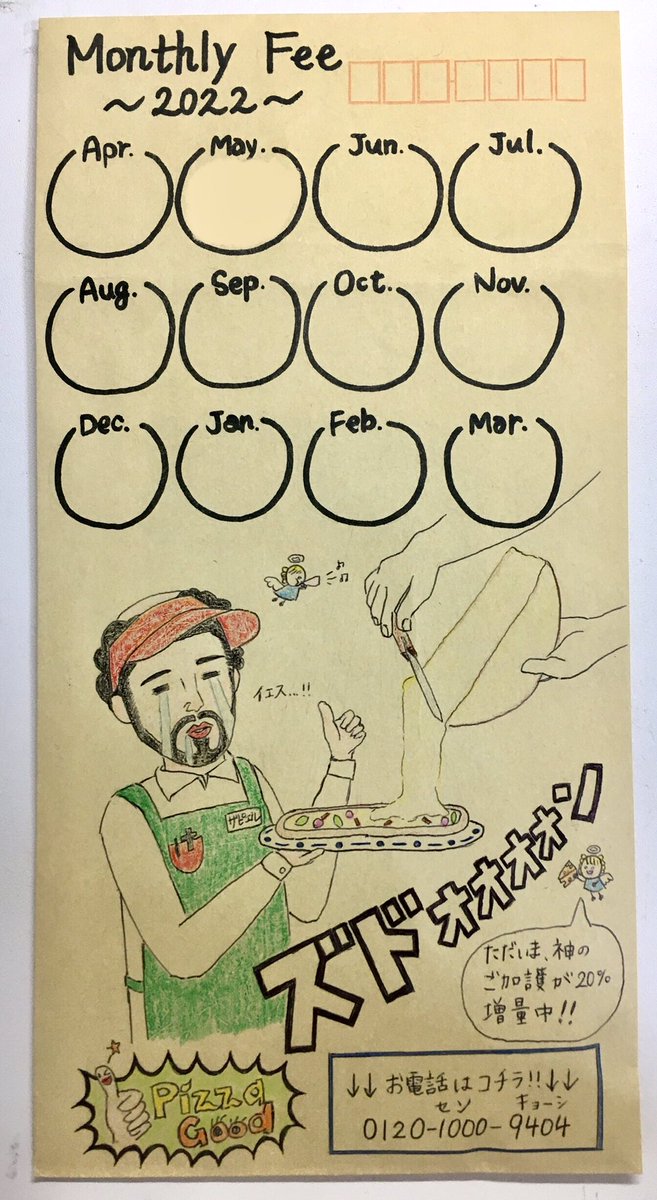 Monthly Fee
～2022～
Apr.
May.
Jun.
Jul.
Aug.
Sep.
Oct.
Nov.
Dec.
Jan.
Feb.
Mar.
イエス…!!
ズドォォォォン
ただいま、神の
ご加護が20%
増量中!!
Pizza
Good
↓↓お電話はコチラ!!↓↓
セン キョーシ
0120-1000-9404